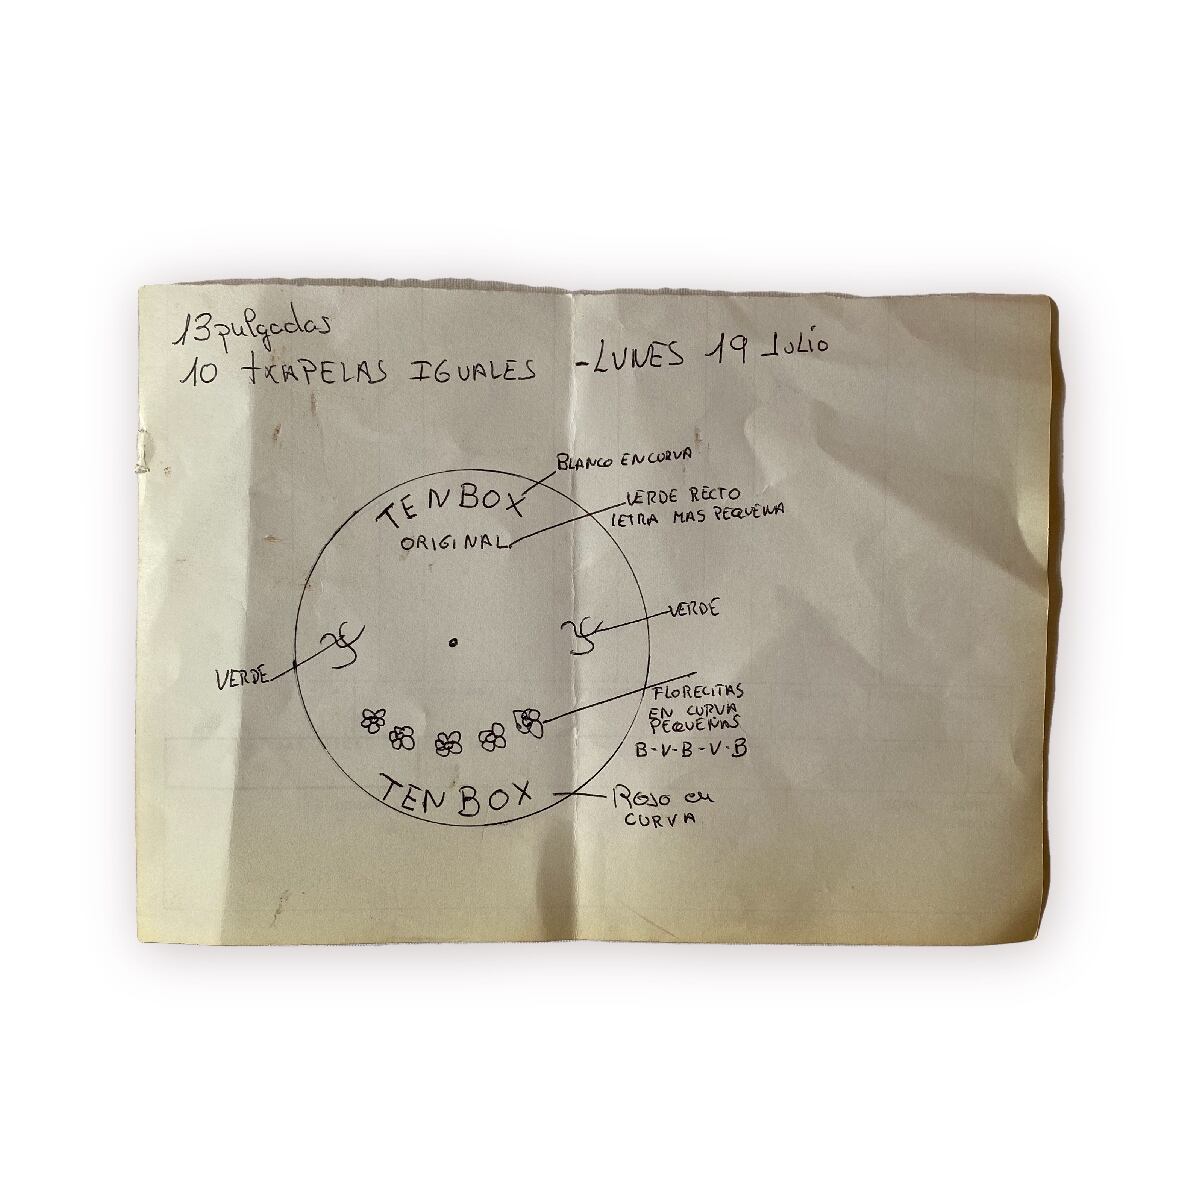 13 pulgadas
10 txAPELAS IGUALES - LUNES 19 JULIO
BLANCO EN CURVA
TENBOX
VERDE RECTO
LETRA MAS PEQUEÑA
ORIGINAL
VERDE
VERDE
FLORECITAS
EN CURVA
PEQUEÑAS
B-V-B-V-B
TENBOX
ROJO en
CURVA